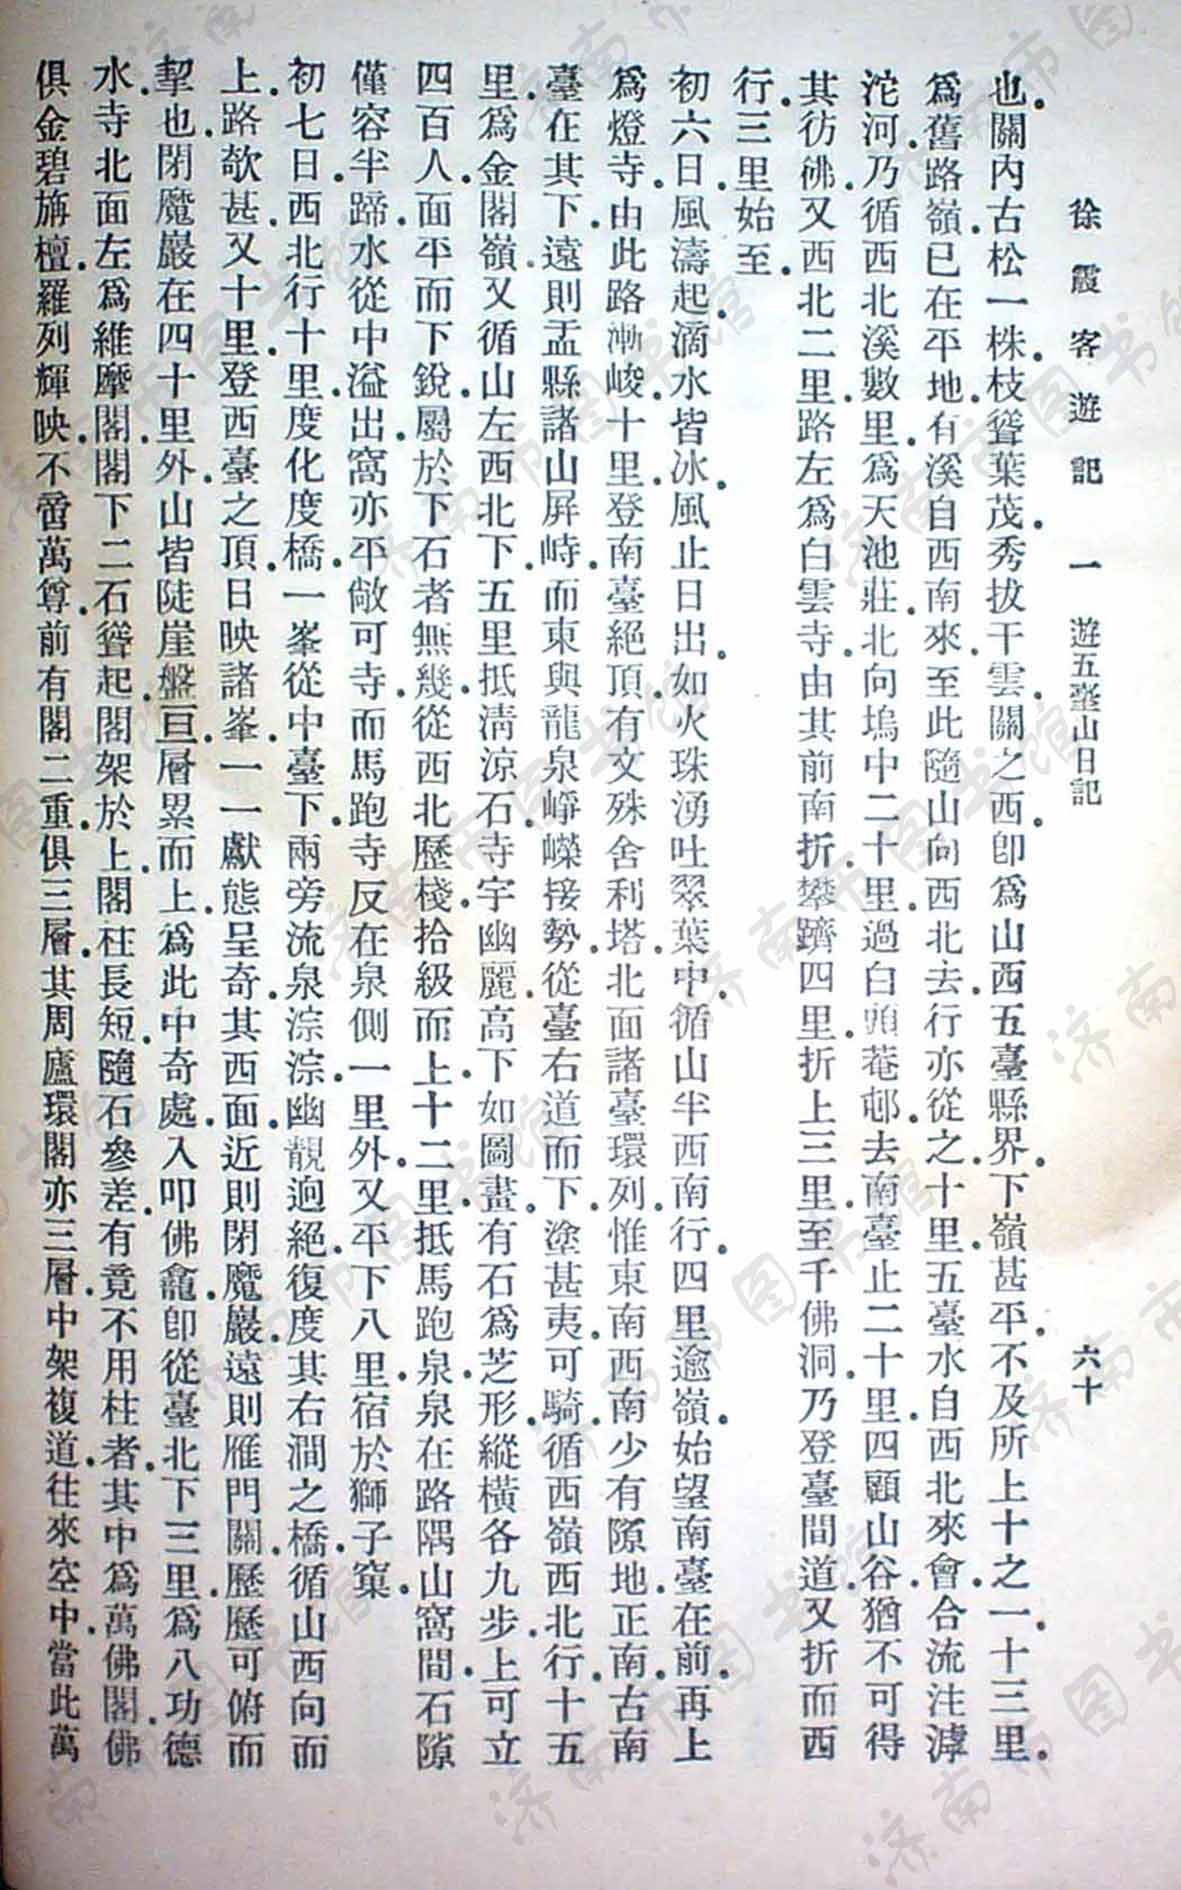 徐霞客遊記 一 遊五臺山日記 六十
也。關內古松一株。枝聳葉茂。秀拔干雲。關之西。卽爲山西五臺縣界。下嶺甚平。不及所上十之一。十三里。
爲舊路嶺。已在平地。有溪自西南來。至此隨山向西北去。行亦從之。十里。五臺水自西北來會。合流注滹
沱河。乃循西北溪數里。爲天池莊。北向塢中二十里。過白頭菴邨。去南臺止二十里。四顧山谷。猶不可得
其彷彿。又西北二里。路左爲白雲寺。由其前南折。攀躋四里。折上三里。至千佛洞。乃登臺間道。又折而西
行。三里始至。
初六日。風濤起。滴水皆冰。風止日出。如火珠湧吐翠葉中。循山半西南行。四里。逾嶺。始望南臺在前。再上
爲燈寺。由此路漸峻。十里。登南臺絕頂。有文殊舍利塔。北面諸臺環列。惟東南西南少有隙地。正南。古南
臺在其下。遠則盂縣諸山屏峙。而東與龍泉崢嶸接勢。從臺右道而下。塗甚夷。可騎。循西嶺西北行。十五
里。爲金閣嶺。又循山左西北下。五里。抵淸涼石。寺宇幽麗。高下如圖畫。有石爲芝形。縱橫各九步。上可立
四百人。面平而下銳。屬於下石者無幾。從西北歷棧拾級而上。十二里。抵馬跑泉。泉在路隅山窩間。石隙
僅容半蹄。水從中溢出。窩亦平敞可寺。而馬跑寺反在泉側一里外。又平下八里。宿於獅子窠。
初七日。西北行十里。度化度橋。一峯從中臺下。兩旁流泉淙淙。幽靚迥絕。復度其右澗之橋。循山西向而
上。路欹甚。又十里。登西臺之頂。日映諸峯。一一獻態呈奇。其西面。近則閉魔巖。遠則雁門關。歷歷可俯而
挈也。閉魔巖在四十里外。山皆陡崖盤亘。層累而上。爲此中奇處。入叩佛龕。卽從臺北下。三里。爲八功德
水。寺北面。左爲維摩閣。閣下二石聳起。閣架於上。閣柱長短。隨石參差。有竟不用柱者。其中爲萬佛閣。佛
俱金碧旃檀。羅列輝映。不啻萬尊。前有閣二重。俱三層。其周廬環閣亦三層。中架複道。往來空中。當此萬